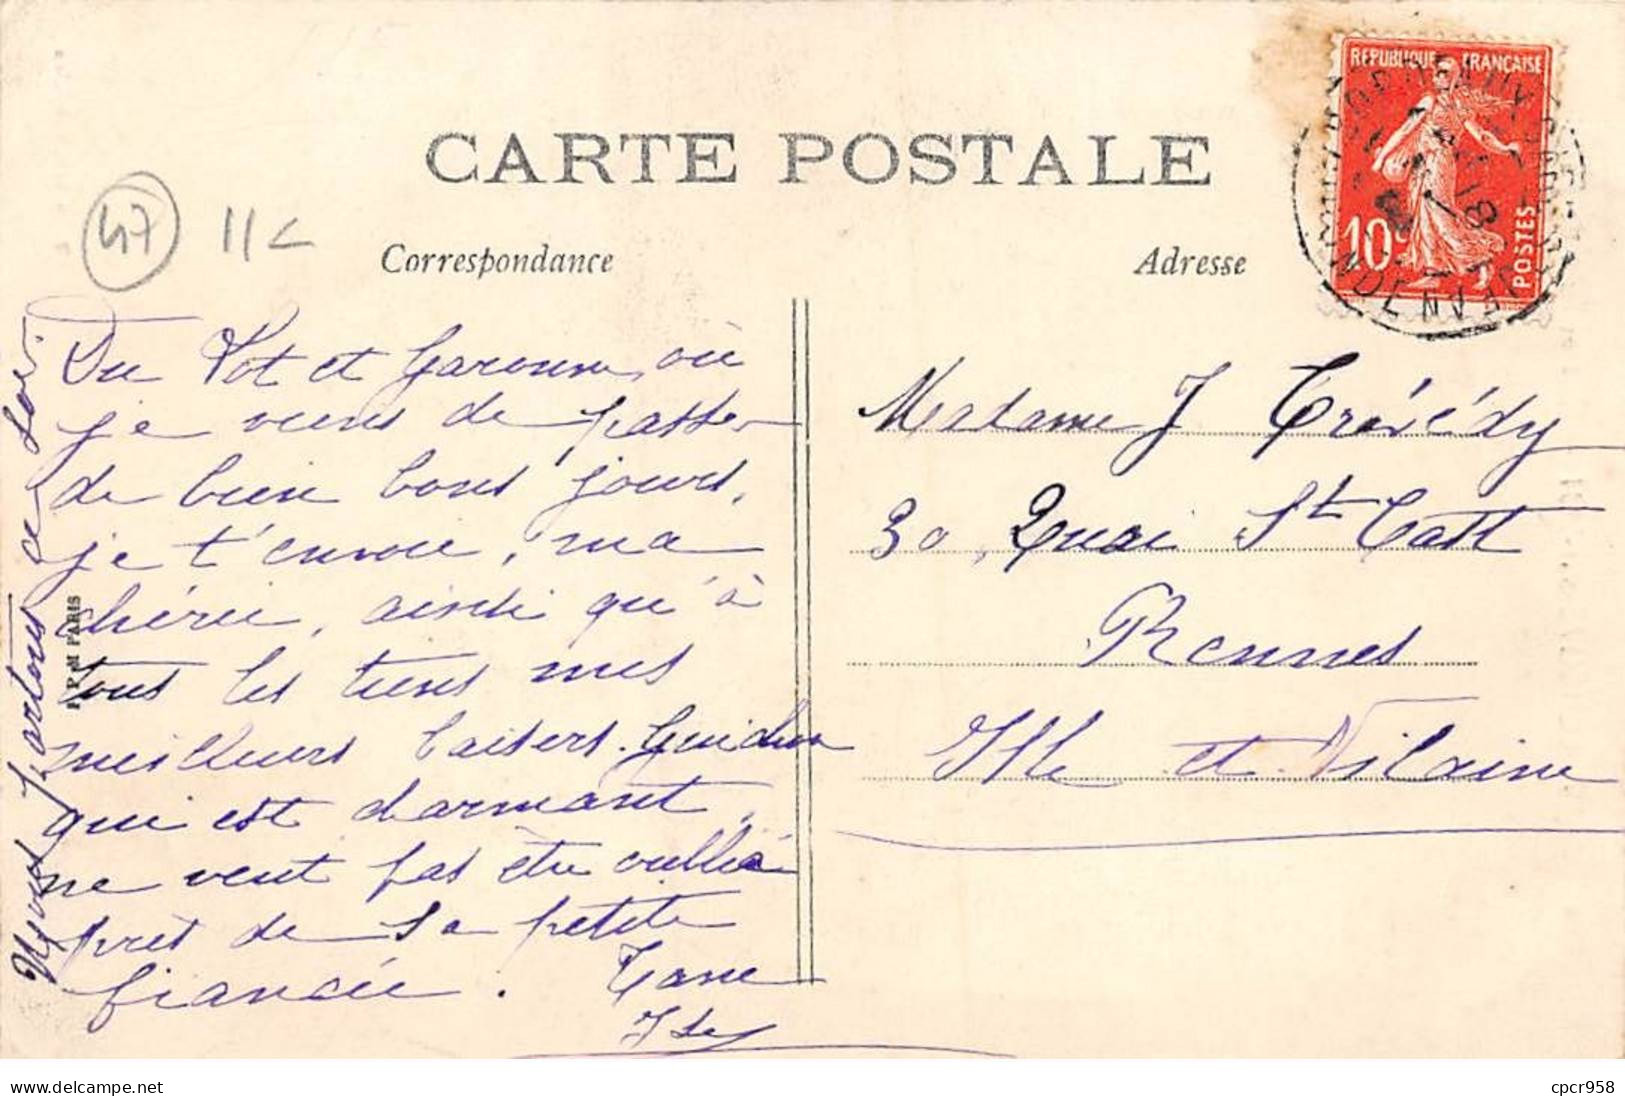 CARTE POSTALE
47
11
Correspondance
Adresse
REPUBLIQUE FRANÇAISE
10c
POSTES
Du Lot et Garonne, où
je viens de passer
de bien bons jours,
je t'envoie, ma
chérie, ainsi qu'à
tous les tiens mes
meilleurs baisers.
qui est charmant,
ne veut pas être oublié
près de sa petite
fiancée.
Nous partons ce soir.
PARIS
Madame J Trévédy
30, Quai St Cast
Rennes
Ille et Vilaine
www.delcampe.net
cpcr958